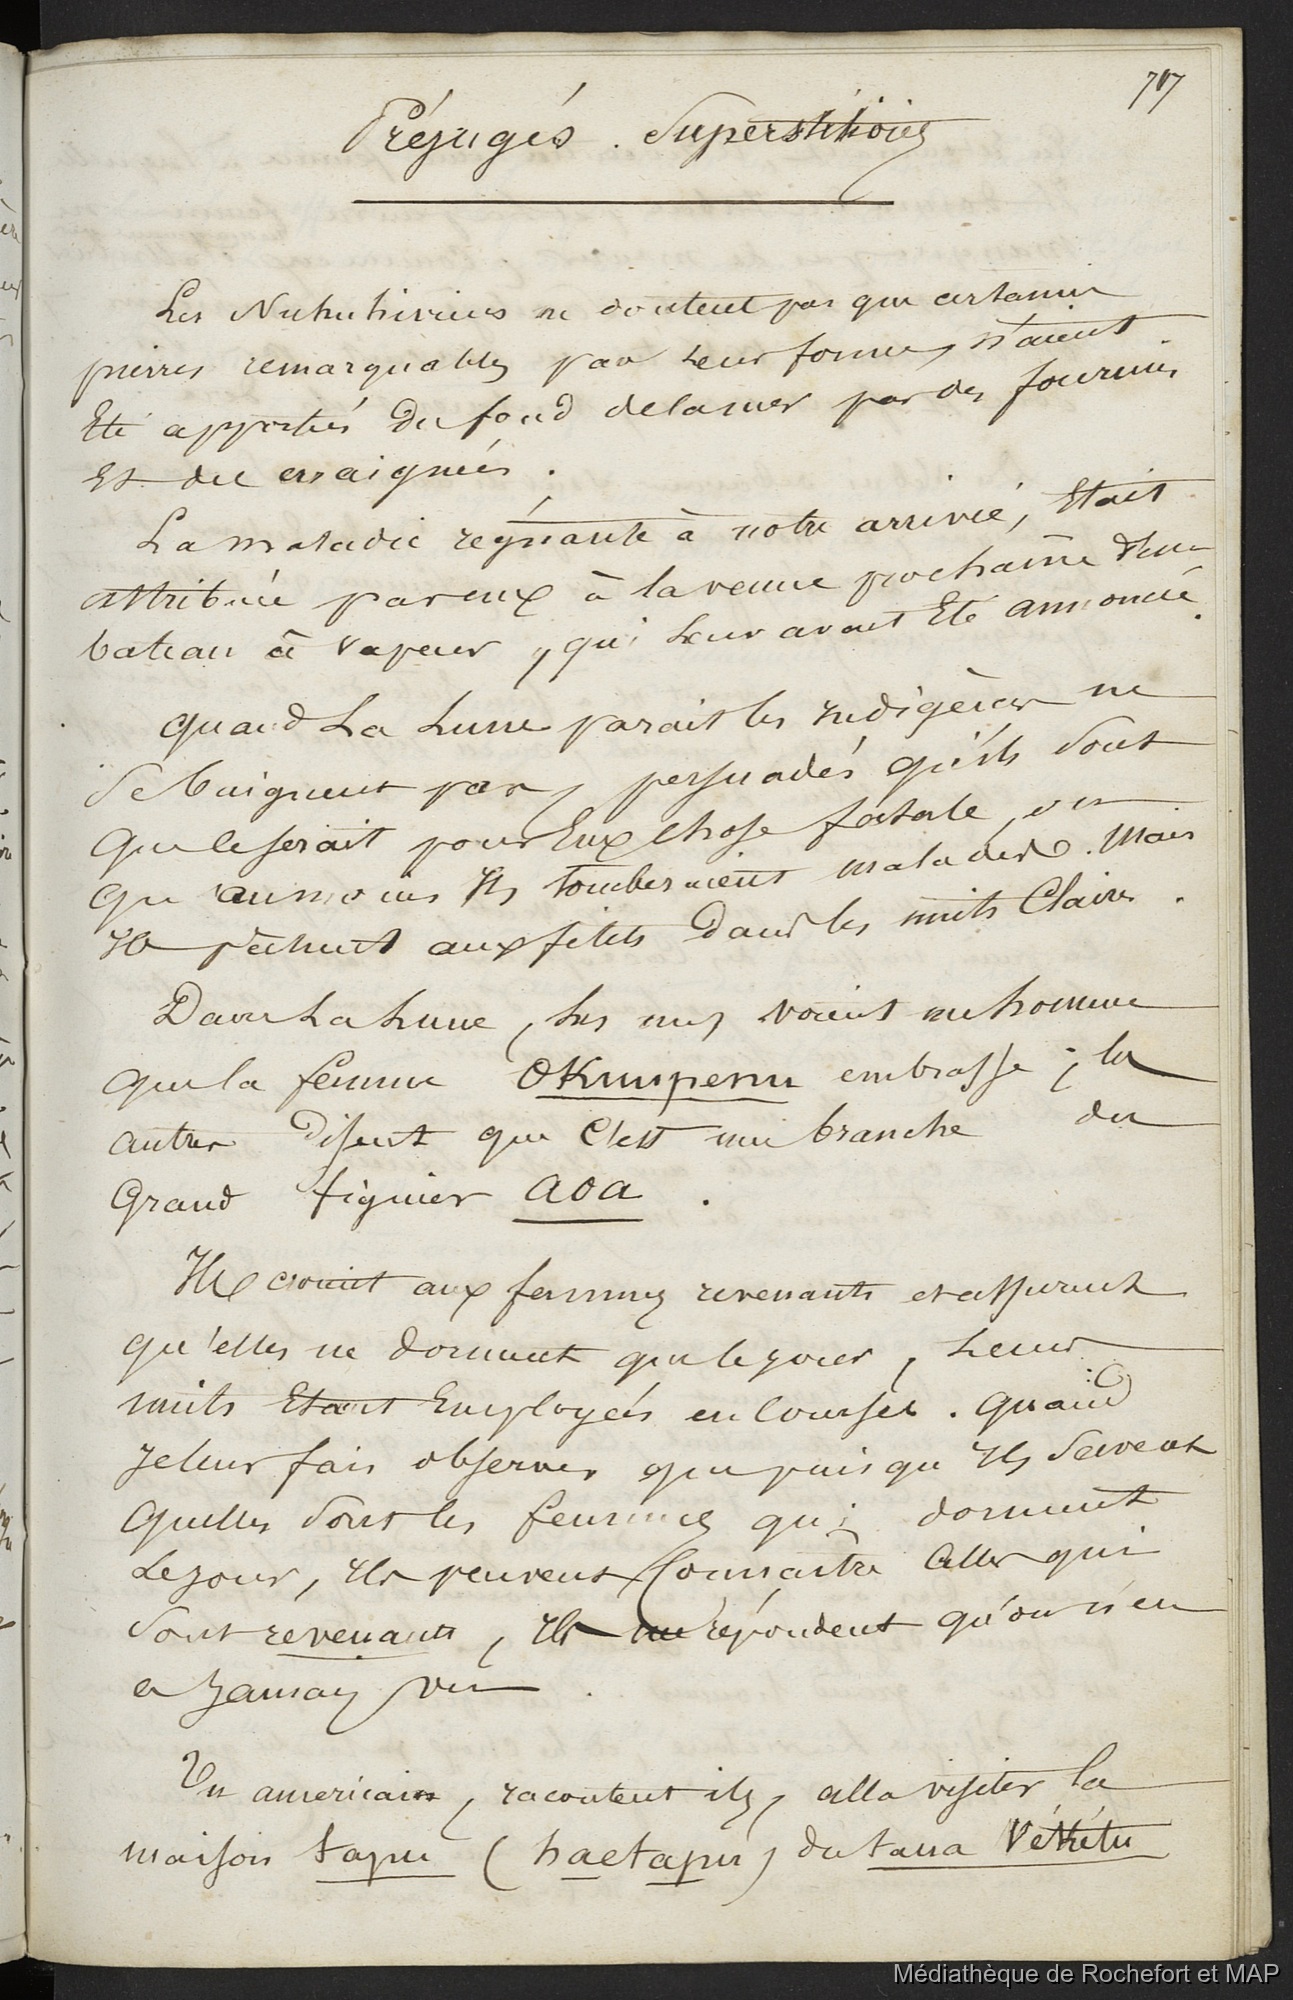 717
Préjugés. Superstitions
Les Nukuhiviens ne doutent pas que certaines
pierres remarquables par leur forme, n'aient
Eté apportés du fond de la mer par des fourmis
Et des arraignées.
La maladie régnante à notre arrivée, Etait
attribuée par eux à la venue prochaine d'un
bateau à vapeur, qui leur avait Eté annoncé.
quand La Lune parait les indigènes ne
se baignent pas, persuadés qu'ils sont
que ce serait pour Eux chose fatale, ou
qu'aumoins Ils tomberaient malades. Mais
Ils pêchent aux filets Dans les nuits Claires.
Dans La Lune, les uns voient un homme
que la femme Okuupenu embrasse; les
autres Disent que C'est une branche du
Grand figuier aoa.
Ils croient aux femmes revenants et assurent
qu'elles ne dorment que le jour, Leurs
nuits Etant Employées en Courses. Quand
Je leur fais observer que puisqu'Ils savent
quelles sont les femmes qui dorment
Le jour, Ils peuvent Connaitre Celles qui
sont révenants, Ils me répondent qu'on n'en
a Jamais vu.
Un americain, racontent ils, alla visiter la
maison tapu (haetapu) du taua Vékétu
Médiathèque de Rochefort et MAP